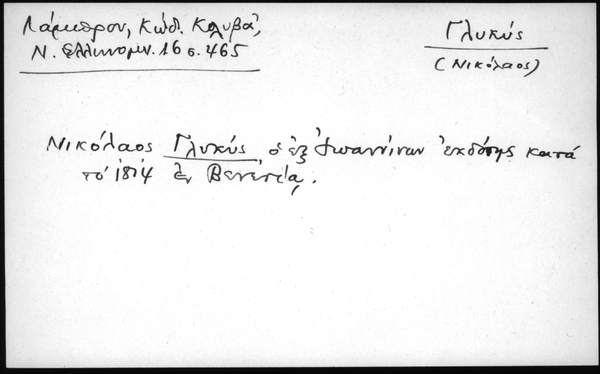 Λάμπρου, Κώδ. Κολυβᾶ,
Ν. Ἑλληνομν. 16 σ. 465
Γλυκύς
(Νικόλαος)
Νικόλαος Γλυκύς, ὁ ἐξ Ἰωαννίνων ἐκδότης κατά
τό 1814 ἐν Βενετίᾳ.